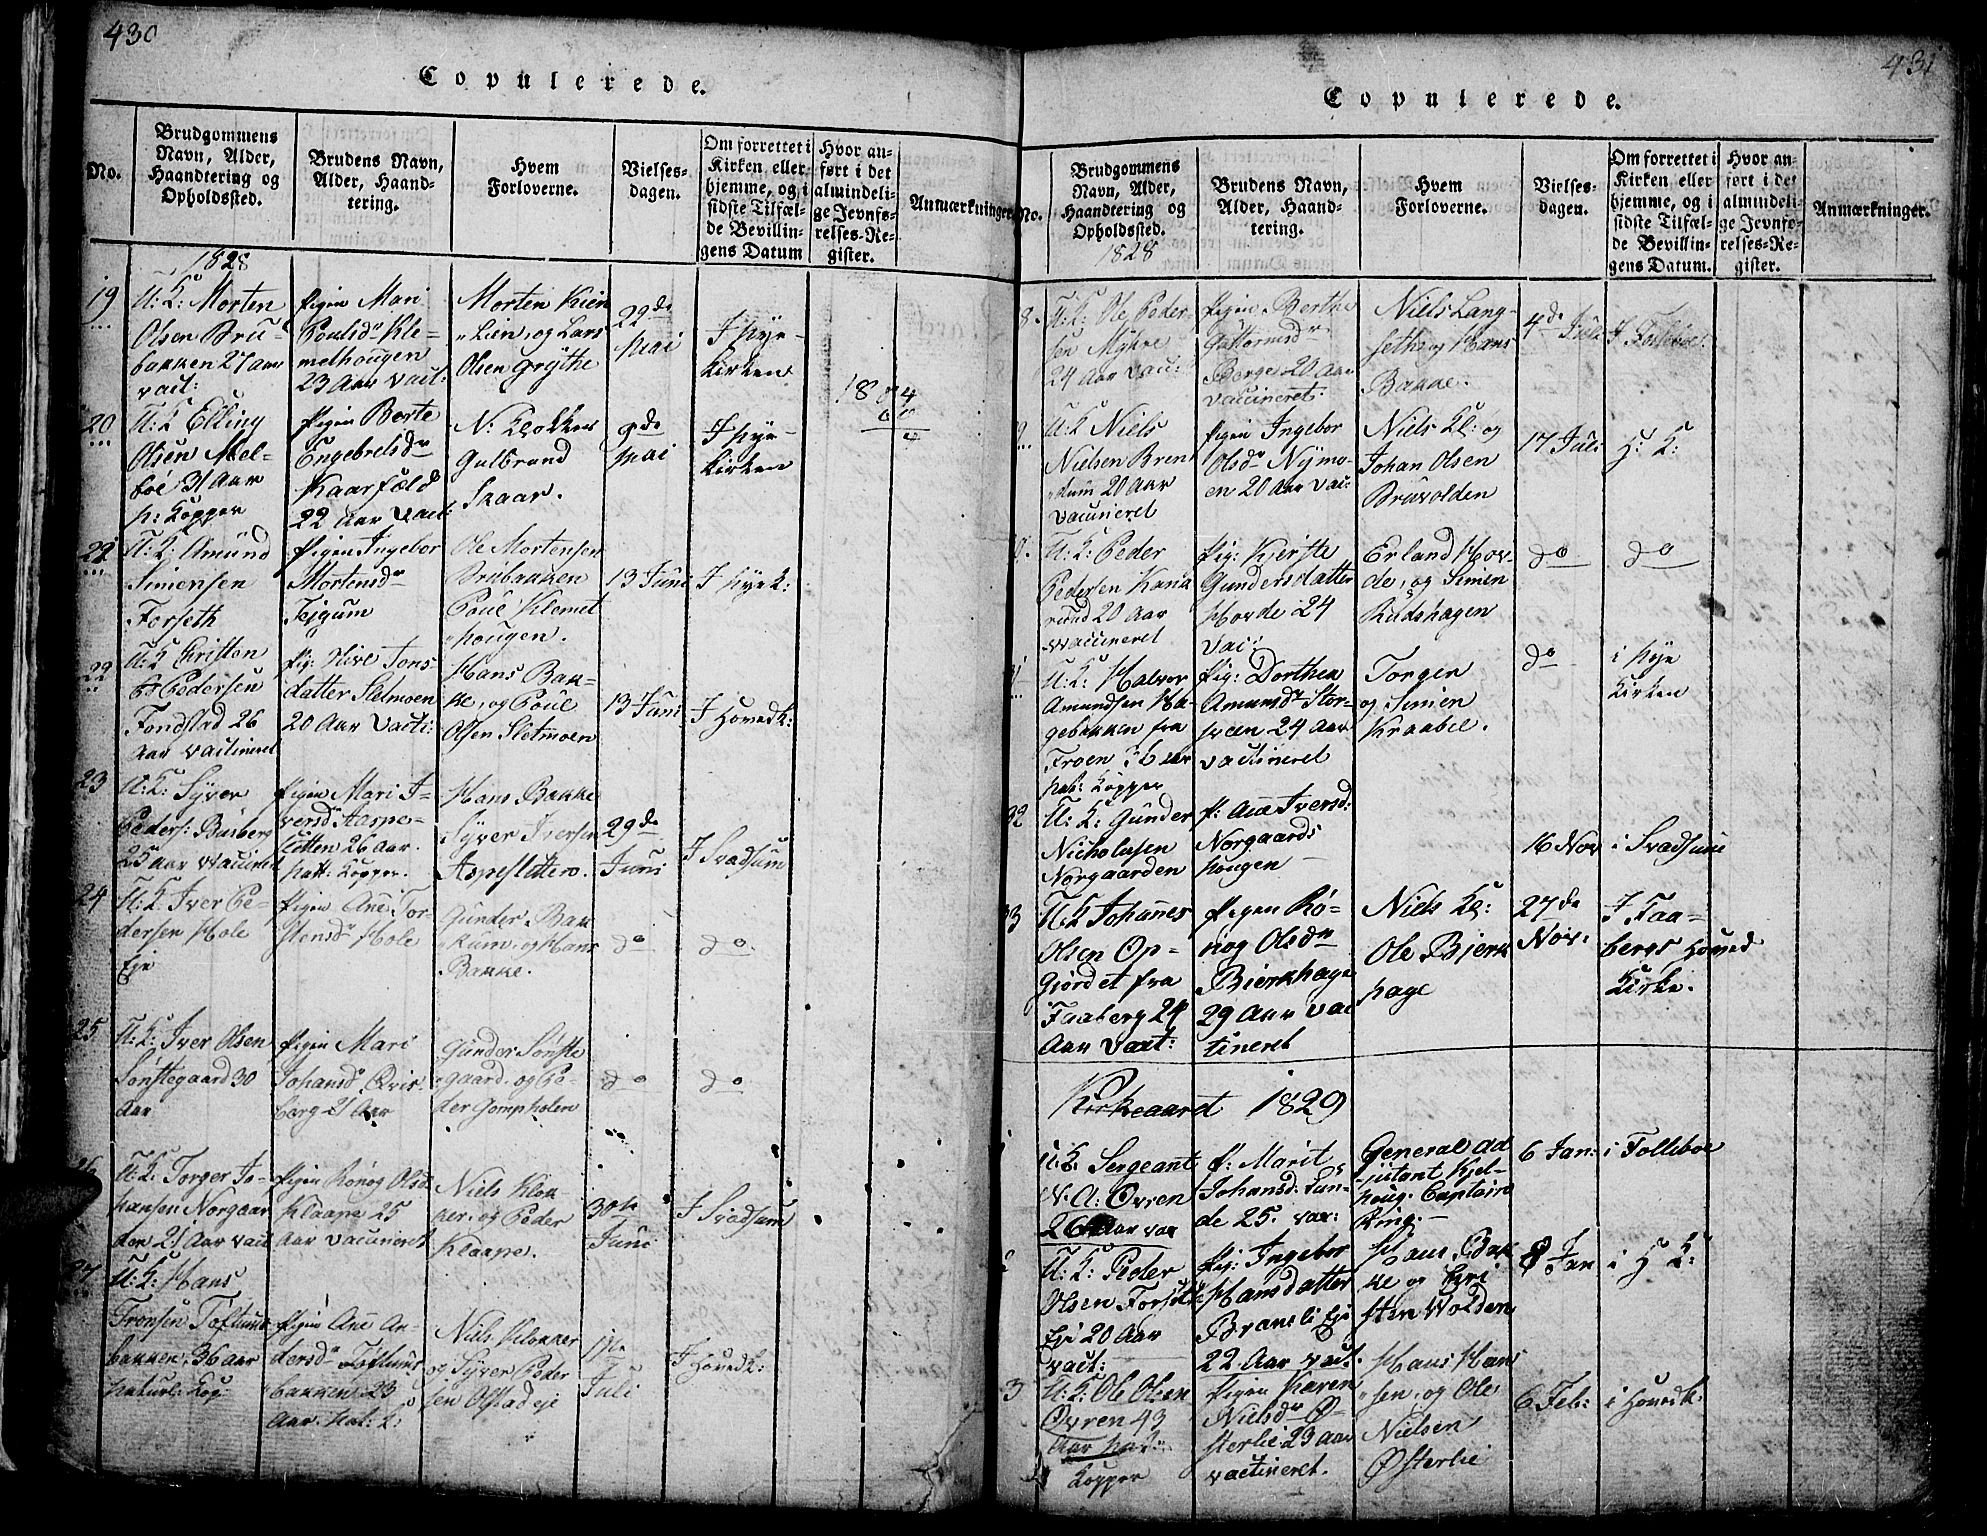 430
Copulerede.
No.
Brudgommens
Navn, Alder,
Haandtering og
Opholdssted.
Brudens Navn,
Alder, Haand-
tering.
Hvem
Forloverne.
Vielses-
dagen.
Om forrettet i
Kirken eller
hjemme, og i
sidste Tilfæl-
de Bevillin-
gens Datum
Hvor an-
ført i det
almindeli-
ge Jevnfø-
relses-Re-
gister.
Anmærkninger
1828
19
U: K: Morten
Olsen Bru-
bakken 27 aar
vact:
Pigen Mari
Poulsdr Kle-
methougen
23 Aar vact:
Morten Kien
Lien, og Lars
Olsen Grythe
22de
Mai
I Nye-
kirken
1874
20
U: K Elling
Olsen Mel-
boe 31 Aar
N: Kopper
Pigen Borte
Engebretsdr
Kaarfald
22 Aar Vact:
N: Klokker
Gulbrand
Skaar.
Mai
I Nye-
kirken
21
U: K: Amund
Simensen
Forseth
Pigen Ingebor
Mortensdr
Feigum
Ole Mortensen
Brubakken
Poul Klemet
hougen.
13 Juni
I Nye K:
22
U: K Christen
Pedersen
Fondstad 26
Aar vactineret
Pig: Live Jons-
datter Sletmoen
20 Aar Vacti:
Hans Bak-
ke, og Poul
Olsen Sletmoen
13 Juni
I Hovedk:
23
U: K: Syver
Peders: Busberg
25 aar vaccineret
Pigen Mari I-
versdr Aaspe-
sletten 26 aar.
hatt: Kopper.
Hans Bakke
Syver Iversen
Aspesletten.
29de
Juni
I Svadsum
24
U: K: Iver Pe-
dersen Hole
Eje
Pigen Ane Tor-
stensdr Hole
Gunder Bak
kum, og Hans
Bakke.
do
do
25
U: K: Iver Olsen
Sønstegaard 30
Aar
Pigen Mari
Johansdr Qvis
berg 21 Aar
Gunder Sønste
gaard. og Pe-
der Gompholen
do
do
26
U: K: Torger Jo-
hansen Norgaar
den 21 Aar vact
Pigen Rønog Olsd
Klaape 25
Aar vaccineret
Niels Klok
ker. og Peder
Klaape.
30te
Juni
I Svadsum
27
U: K: Hans
Tronsen Toftum
bakken. 36 aar
naturl: Kop:
Pigen Ane An-
dersdr Toftum
bakken 23
Aar. Nat: K:
Niels Klokker
og Syver Peder
sen Olstad eje
1ste
Juli
I Hovedk:
431
Copulerede.
No.
Brudgommens
Navn, Alder,
Haandtering og
Opholdssted.
Brudens Navn,
Alder, Haand-
tering.
Hvem
Forloverne.
Vielses-
dagen.
Om forrettet i
Kirken eller
hjemme, og i
sidste Tilfæl-
de Bevillin-
gens Datum.
Hvor an-
ført i det
almindeli-
ge Jevnfø-
relses-Re-
gister.
Anmærkninger.
1828
8.
U: K: Ole Peder
sen Myhre
24 Aar vac:
Pigen Berthe
Guttormsdr
Berge 20 Aar
vaccineret:
Niels Lang-
seth og Hans
Bakke.
4de Juli
I Folleboe:
9
U: K Niels
Nielsen Bren
dum 20 aar
vaccineret
Pigen Ingebor
Olsdr Nymo-
en 20 Aar vac:
Niels Kl: og
Johan Olsen
Bruvolden
17 Juli
H: K:
0.
U: K: Peder
Pedersen Kank
rud 20 Aar
vaccineret
Pig: Kjersti
Gundersdatter
Hovde 24
vac:
Erland Hov-
de, og Simen
Rudshagen
do
do
U: K: Halvor
Amundsen Ha-
gebakken fra
Froen 36 aar
nat: Kopper
Pig: Dorthea
Amunsdr Stor-
steen 24 aar
vactineret
Torger
og Simen
Kraabøl.
do
i Nye
Kirken
32
U: K: Gunder
Nicholaisen
Norgaarden
P: Ane Iversd:
Norgaards
hougen
16 Nov
i Svadsum
33
U: K Johannes
Olsen Op-
gjordet fra
Faaberg 24
Aar Vact:
Pigen Rø-
nog Olsdr
Bierkhage
29 Aar vac
tineret
Niels Kl:
Ole Bjerk
hage
27de
Nov:
I Faa-
bergs Hoved
Kirke.
Kirkeaaret 1829
U. K: Sergeant
N. A: Øvren
26 Aar vac
P: Marit
Johansd: Lun-
de 25. vac:
General Ad
jutant Kjel-
houg: Captain
Ring.
6 Jan:
i Follebøe
2
U: K: Peder
Olsen Forseth
Eje 20 Aar
vact:
Pig: Ingebor
Hansdatter
Bransli Eje
22 Aar vact.
Hans Bak
ke og Chri
sten Wolden
8 Jan
i H K:
3
U: K: Ole Olsen
Øvren 43
Aar nat:
Kopper
Pigen Karen
Nielsdr Ø-
sterlie 23 aar
vactineret.
Hans Han
sen, og Ole
Nielsen
Østerlie
6 Feb:
i Hovedk: